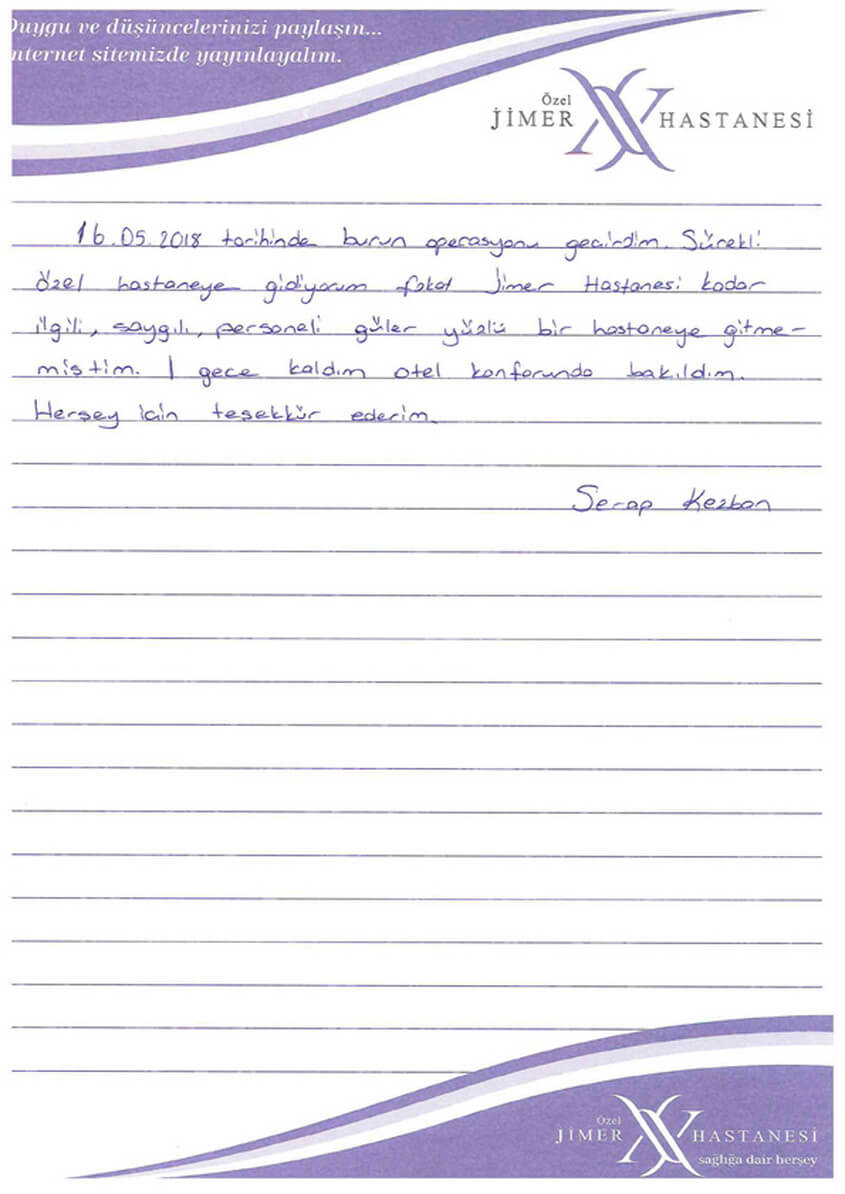 Duygu ve düşüncelerinizi paylaşın...
internet sitemizde yayınlayalım.
Özel
JİMER HASTANESİ
16.05.2018 tarihinde burun operasyonu geçirdim. Sürekli
özel hastaneye gidiyorum fakat Jimer Hastanesi kadar
ilgili, saygılı, personeli güler yüzlü bir hastaneye gitme-
miştim. 1 gece kaldım otel konforunda bakıldım.
Herşey için teşekkür ederim.
Serap Kezban
Özel
JİMER HASTANESİ
sağlığa dair herşey